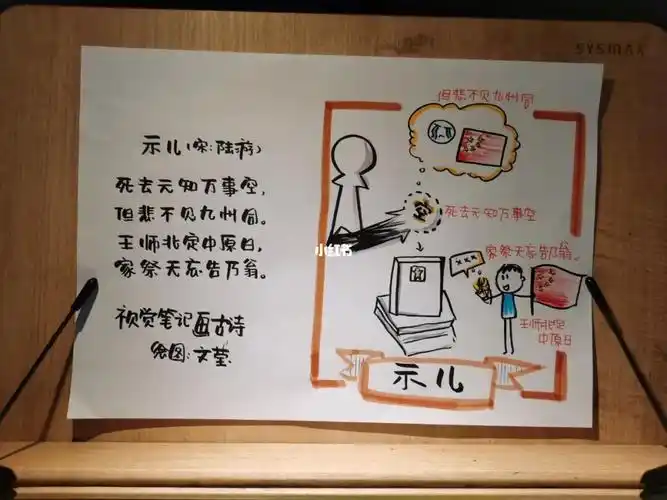 SYSMAX
示儿(宋:陆游)
死去元知万事空,
但悲不见九州同。
王师北定中原日,
家祭无忘告乃翁。
视觉笔记画古诗
绘图:文莹
但悲不见九州同
空
死去元知万事空
小红书
家祭无忘告乃翁。
xxx
王师北定
中原日
示儿